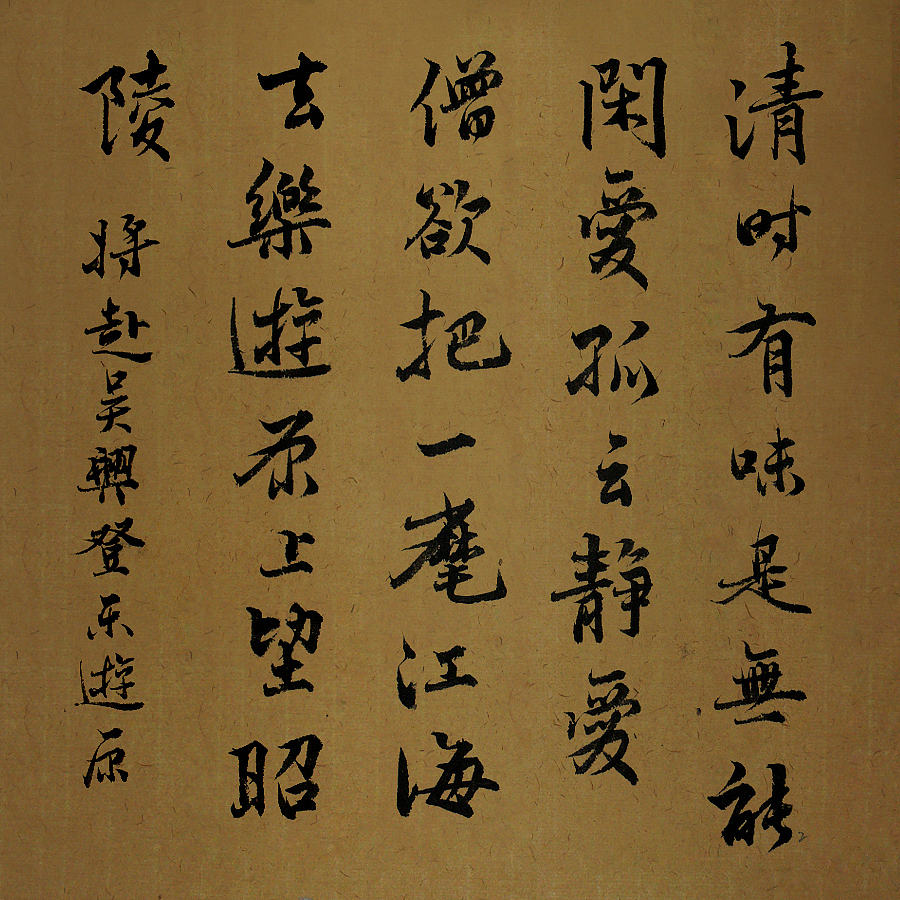 清时有味是無能
閑愛孤云静愛
僧欲把一麾江海
去樂遊原上望昭
陵 将赴吴興登乐遊原